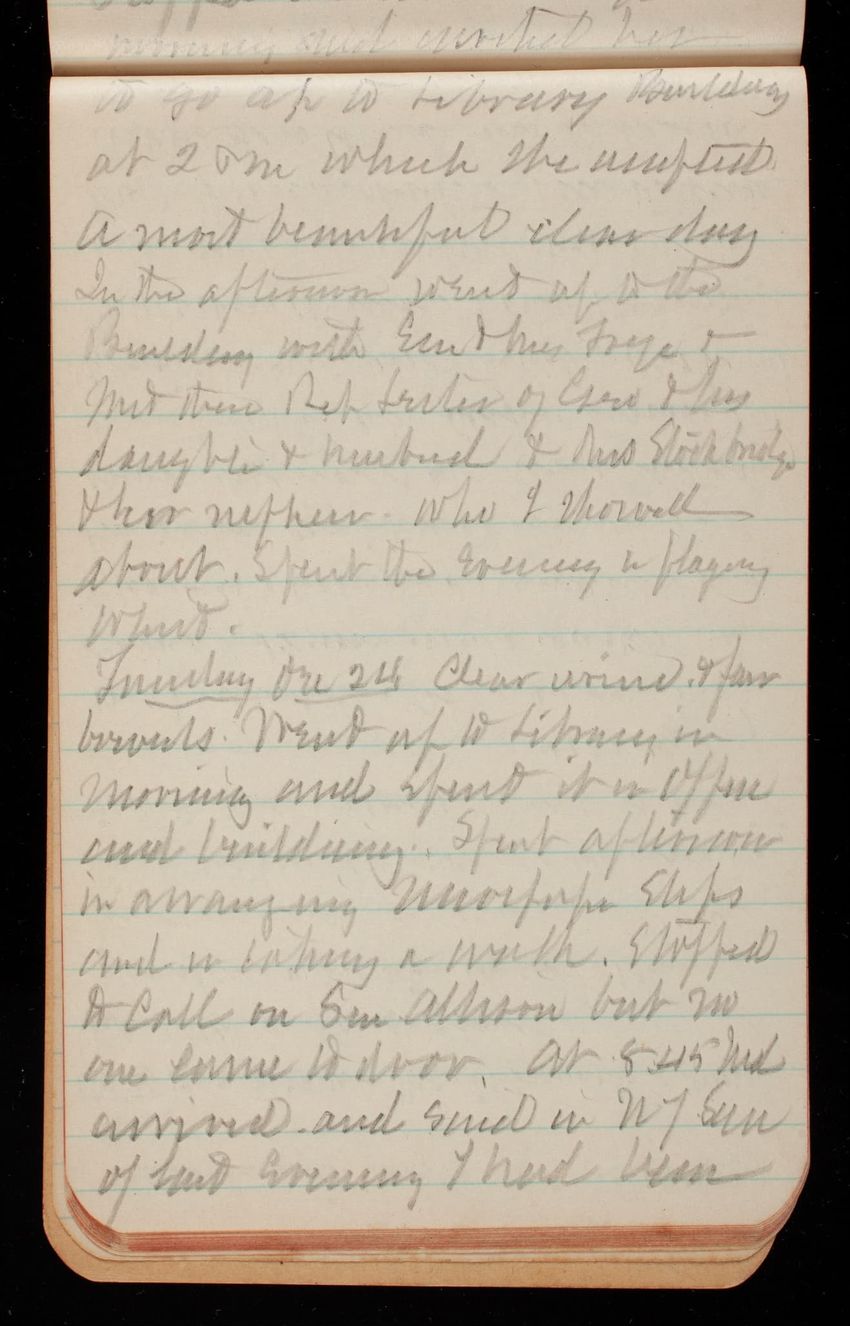 morning and invited her
to go up to Library Building
at 2 PM which she accepted.
A most beautiful clear day
In the afternoon went up to the
Building with Sen & Mrs Frye &
Met there Rep Lester of Geo & his
daughter & husband & Mrs Stockbridge
& her nephew. Who I showed
about. Spent the Evening in playing
whist.
Tuesday Dec 24 Clear wind &
Went up to Library in
morning and spent it in Office
and building. Spent afternoon
in arranging Newspaper Slips
and in taking a walk. Stopped
to Call on Sen Allison but no
one came to door. At 5.45 Ned
arrived and said in N Y Sun
of last Evening I had been